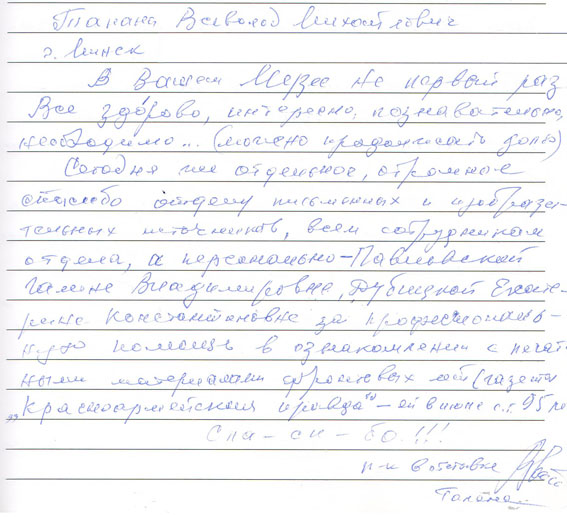 Талана Всеволод Михайлович
г. Минск
В Вашем Музее не первый раз
Все здорово, интересно, познавательно,
необходимо... (можно продолжать долго)
Сегодня же отдельное, огромное
спасибо отделу письменных и изобрази-
тельных источников, всем сотрудникам
отдела, а персонально – Павловской
Галине Владимировне, Дубицкой Екате-
рине Константиновне за профессиональ-
ную помощь в ознакомлении с печат-
ными материалами фронтовых лет (газета
„Красноармейская правда" – ей в июне с.г. 95 лет
Спа – си – бо!!!
п-к в отставке